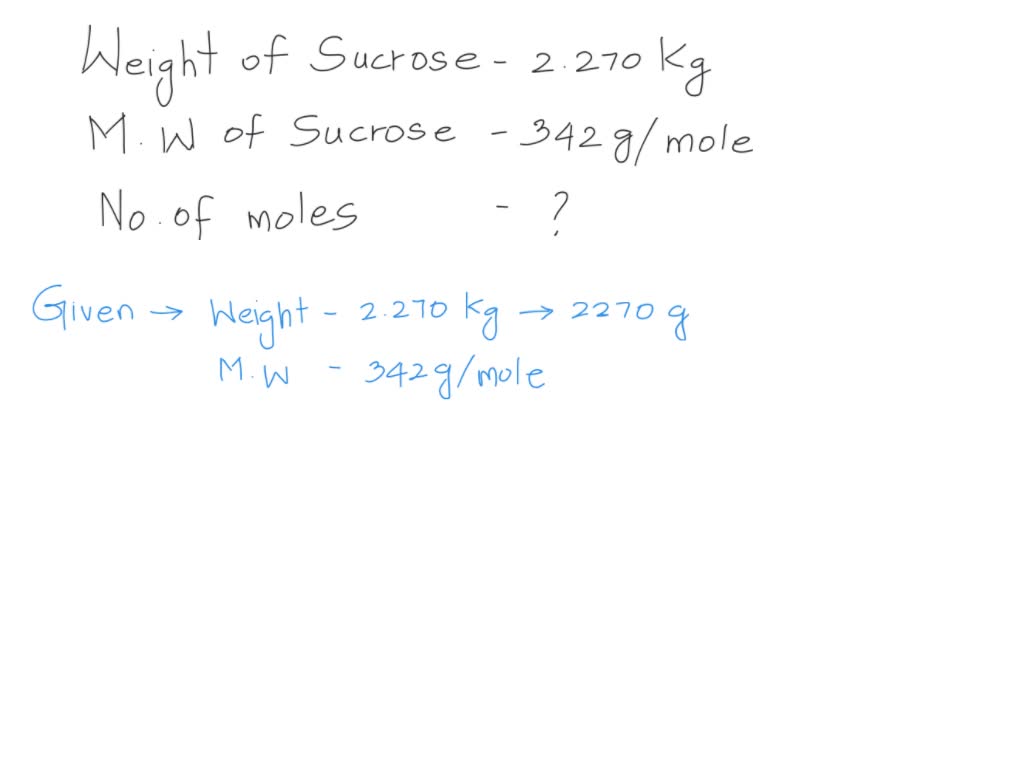 Weight of Sucrose - 2.270 Kg
M.W of Sucrose - 342 g/mole
No. of moles - ?
Given → Weight - 2.270 Kg → 2270 g
M.W - 342 g/mole